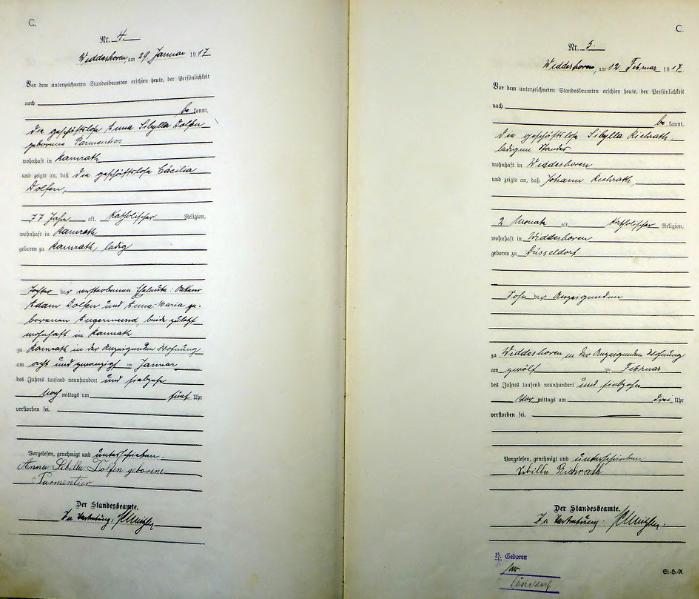 C.
Nr. 4.
Widdeshoven, am 29 Januar 1917
Vor dem unterzeichneten Standesbeamten erschien heute, der Persönlichkeit
nach
be kannt,
die geschäftslose Anna Sibylla Dolfen
geborene Parmentier
wohnhaft in Ramrath
und zeigte an, daß die geschäftslose Cäcilia
Dolfen,
77 Jahre alt, katholischer Religion,
wohnhaft in Ramrath
geboren zu Ramrath, ledig
Tochter der verstorbenen Eheleute
Adam Dolfen und Anna Maria ge-
borenen Angermund, beide zuletzt
wohnhaft in Ramrath
zu Ramrath in der Anzeigenden Wohnung
am acht und zwanzig ten Januar
des Jahres tausend neunhundert und siebzehn
Nach mittags um fünf Uhr
verstorben sei.
Vorgelesen, genehmigt und unterschrieben
Anna Sibilla Dolfen geborene
Parmentier
Der Standesbeamte.
In Vertretung:
C.
Nr. 5.
Widdeshoven, am 12. Februar 1917.
Vor dem unterzeichneten Standesbeamten erschien heute, der Persönlichkeit
nach
be kannt,
die geschäftslose Sibylla Richrath
ledigen Standes
wohnhaft in Widdeshoven
und zeigte an, daß Johann Richrath,
2 Monate alt, katholischer Religion,
wohnhaft in Widdeshoven
geboren zu Düsseldorf
Sohn der Anzeigenden
zu Widdeshoven in der Anzeigenden Wohnung
am zwölf ten Februar
des Jahres tausend neunhundert und siebzehn
Vor mittags um drei Uhr
verstorben sei.
Vorgelesen, genehmigt und unterschrieben
Sibilla Richrath
Der Standesbeamte.
In Vertretung:
Geboren